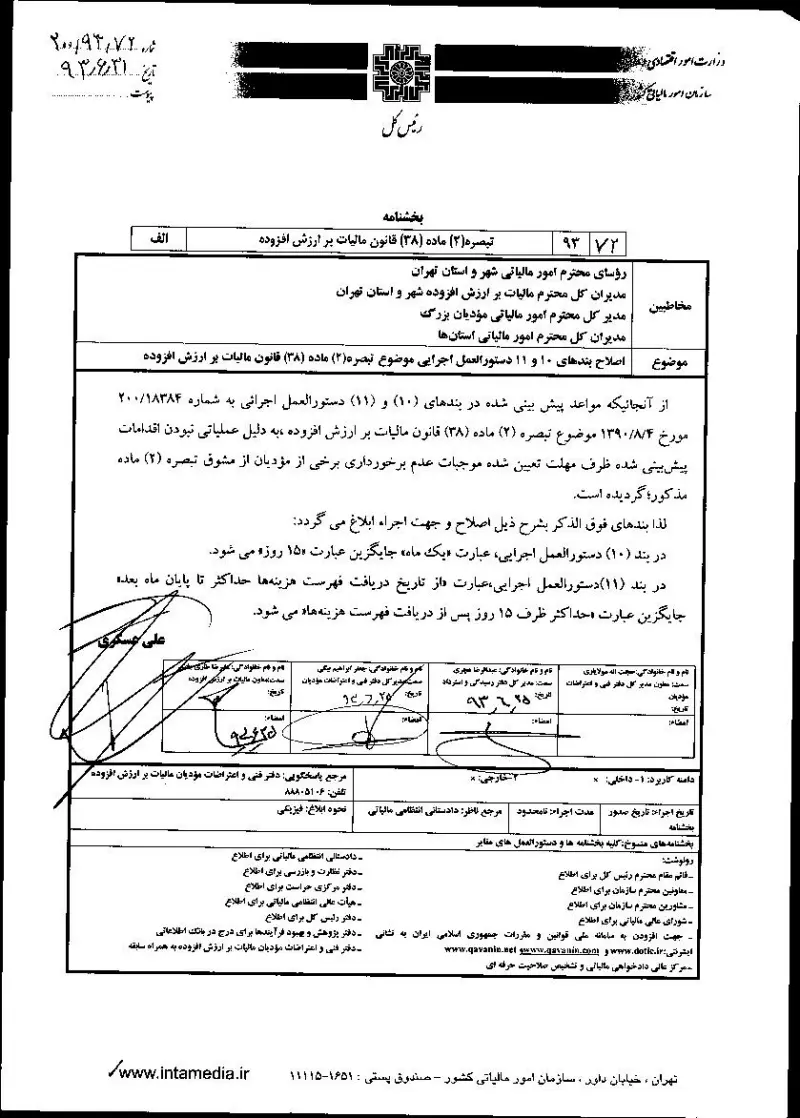 وزارت امور اقتصادی و
سازمان امور مالیاتی کشور
شماره ۲۰۰/۹۳/۷۲
تاریخ ۹۳/۶/۳۱
پیوست
رئیس کل
بخشنامه
۷۲ ۹۳ تبصره(۲) ماده (۳۸) قانون مالیات بر ارزش افزوده الف
مخاطبین
رؤسای محترم امور مالیاتی شهر و استان تهران
مدیران کل محترم مالیات بر ارزش افزوده شهر و استان تهران
مدیر کل محترم امور مالیاتی مؤدیان بزرگ
مدیران کل محترم امور مالیاتی استان‌ها
موضوع اصلاح بندهای ۱۰ و ۱۱ دستورالعمل اجرایی موضوع تبصره(۲) ماده (۳۸) قانون مالیات بر ارزش افزوده
از آنجائیکه مواعد پیش بینی شده در بندهای (۱۰) و (۱۱) دستورالعمل اجرائی به شماره ۲۰۰/۱۸۳۸۴
مورخ ۱۳۹۰/۸/۴ موضوع تبصره (۲) ماده (۳۸) قانون مالیات بر ارزش افزوده ،به دلیل عملیاتی نبودن اقدامات
پیش‌بینی شده ظرف مهلت تعیین شده موجبات عدم برخورداری برخی از مؤدیان از مشوق تبصره (۲) ماده
مذکور؛گردیده است.
لذا بندهای فوق الذکر بشرح ذیل اصلاح و جهت اجراء ابلاغ می گردد:
در بند (۱۰) دستورالعمل اجرایی، عبارت «یک ماه» جایگزین عبارت «۱۵ روز» می شود.
در بند (۱۱)دستورالعمل اجرایی،عبارت «از تاریخ دریافت فهرست هزینه‌ها حداکثر تا پایان ماه بعد»
جایگزین عبارت «حداکثر ظرف ۱۵ روز پس از دریافت فهرست هزینه‌ها» می شود.
علی عسکری
نام و نام خانوادگی: حجت اله مولایاری
سمت: معاون مدیر کل دفتر فنی و اعتراضات
مؤدیان
تاریخ:
امضاء:
نام و نام خانوادگی: عبدالرضا
سمت: مدیر کل دفتر رسیدگی و استرداد
تاریخ: ۹۳،۶،۲۵
امضاء:
نام و نام خانوادگی: جعفر ابراهیم بیگی
سمت: مدیرکل دفتر فنی و اعتراضات مؤدیان
تاریخ: ۹۳،۶،۲۵
امضاء:
نام و نام خانوادگی: علیرضا
سمت: معاون مالیات بر ارزش افزوده
تاریخ:
امضاء:
۹۳/۶/۲۵
دامنه کاربرد: ۱- داخلی: × ۲-خارجی: × مرجع پاسخگویی: دفتر فنی و اعتراضات مؤدیان مالیات بر ارزش افزوده
تلفن: ۸۸۸۰۵۱۰۶
تاریخ اجراء: تاریخ صدور مدت اجراء: نامحدود مرجع ناظر: دادستانی انتظامی مالیاتی نحوه ابلاغ: فیزیکی
بخشنامه
بخشنامه‌های منسوخ: کلیه بخشنامه ها و دستورالعمل های مغایر
رونوشت:
-قائم مقام محترم رئیس کل برای اطلاع
- معاونین محترم سازمان برای اطلاع
- مشاورین محترم سازمان برای اطلاع
- شورای عالی مالیاتی برای اطلاع
- جهت افزودن به سامانه ملی قوانین و مقررات جمهوری اسلامی ایران به نشانی
اینترنتی:www.dotic.ir و www.qavanin.com www.qavanin.net
-مرکز عالی دادخواهی مالیاتی و تشخیص صلاحیت حرفه ای
- دادستانی انتظامی مالیاتی برای اطلاع
-دفتر نظارت و بازرسی برای اطلاع
- دفتر مرکزی حراست برای اطلاع
- هیأت عالی انتظامی مالیاتی برای اطلاع
- دفتر رئیس کل برای اطلاع
-دفتر پژوهش و بهبود فرآیندها برای درج در بانک اطلاعاتی
- دفتر فنی و اعتراضات مؤدیان مالیات بر ارزش افزوده به همراه سابقه
تهران ، خیابان داور ، سازمان امور مالیاتی کشور - صندوق پستی : ۱۶۵۱-۱۱۱۱۵
www.intamedia.ir